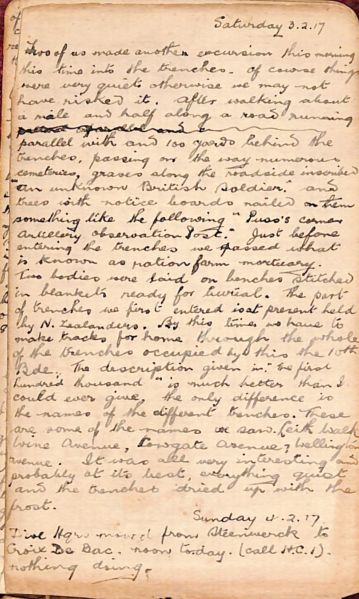 Saturday 3.2.17
Two of us made another excursion this morning
this time into the trenches. Of course things
were very quiet otherwise we may not
have risked it. After walking about
a mile and half along a road running
parallel with and 100 yards behind the
trenches, passing on the way numerous
cemeteries, graves along the roadside inscribed
"an unknown British soldier." and
trees with notice boards nailed on them
something like the following "Puss's corner
Artillery Observation Post." Just before
entering the trenches we passed what
is known as ration farm mortuary.
Two bodies were laid on benches stitched
in blankets ready for burial. The part
of trenches we first entered is at present held
by N. Zealanders. By this time we have to
make tracks for home through the whole
of the trenches occupied by this the 10th
Bde. The description given in "The first
hundred thousand" is much better than I
could ever give, the only difference is
the names of the different trenches. These
are some of the names we saw. Leith Walk
Wine Avenue, Cowgate Avenue, Wellington
Avenue. It was all very interesting and
probably at its best, everything quiet
and the trenches dried up with the
frost.
Sunday 4.2.17
Divl Hqrs moved from Steenwerck to
Croix De Bac. noon today. (call H.C.1).
nothing doing.